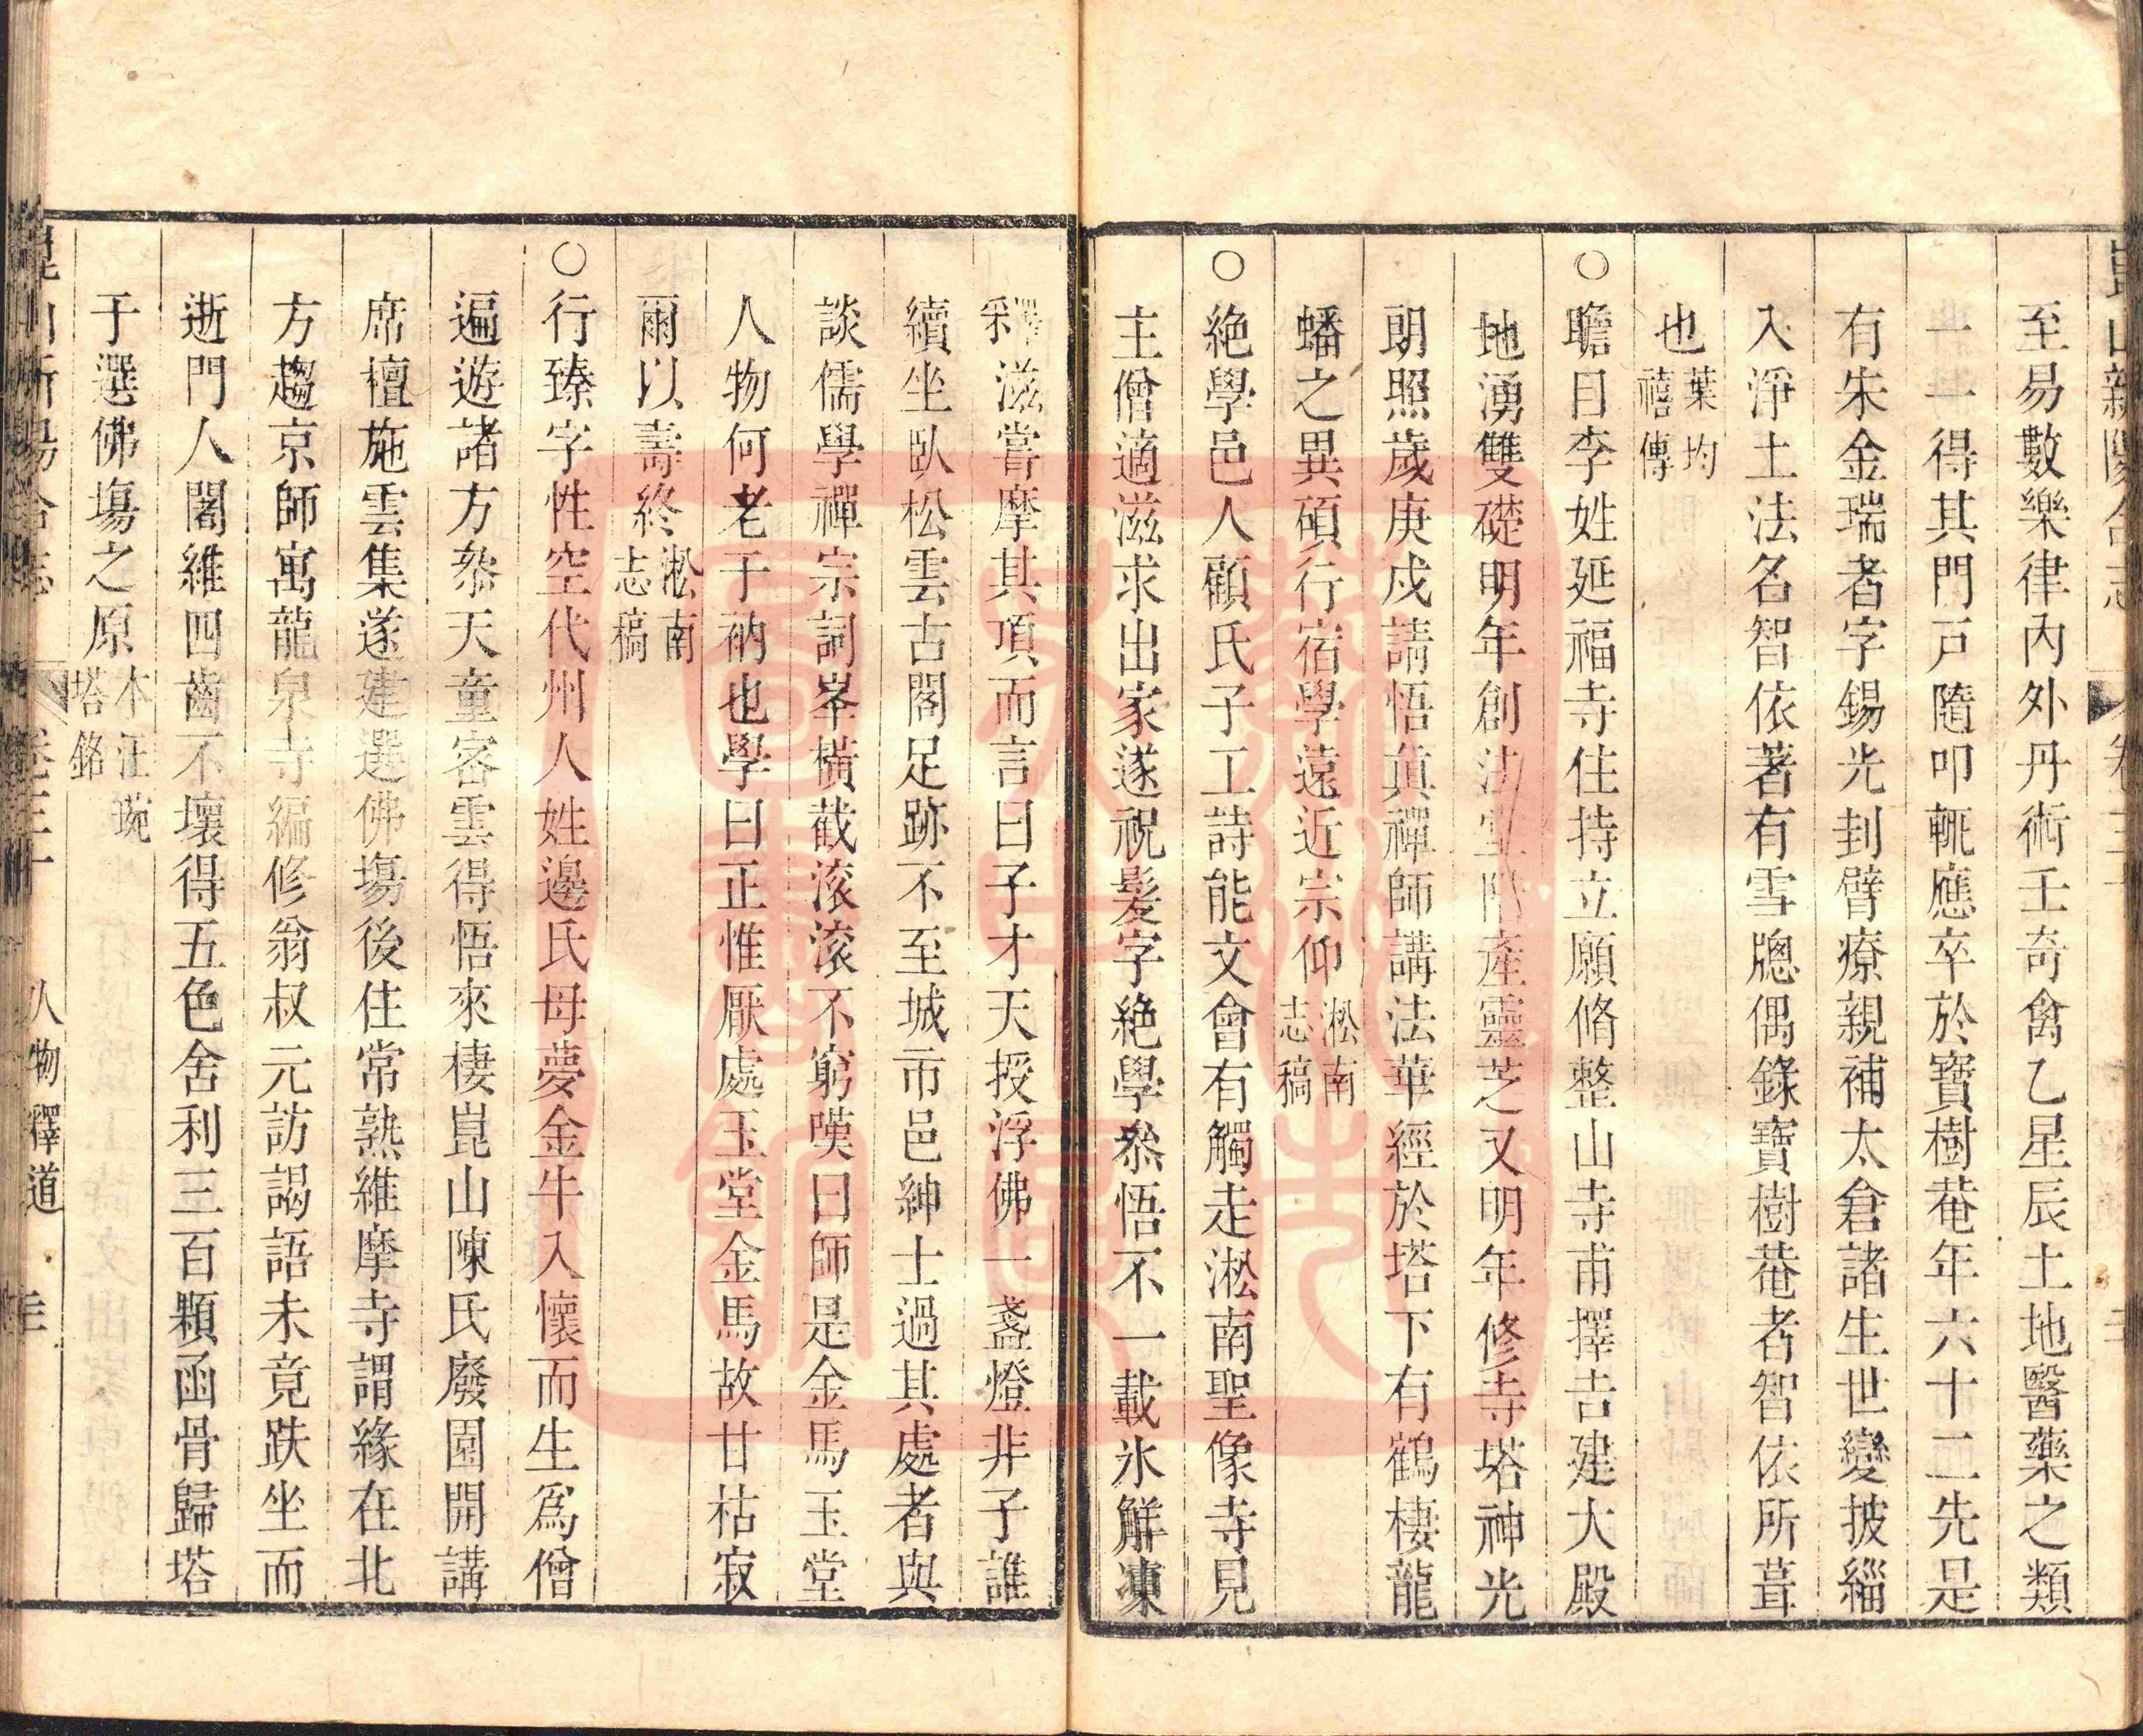 至易數樂律內外丹術壬奇禽乙星辰土地醫藥之類
一一得其門戸隨叩輒應卒於寶樹菴年六十二先是
有朱金瑞者字錫光刲臂療親補太倉諸生世變披緇
入淨土法名智依著有雪牕偶錄寶樹菴者智依所葺
也葉均
禧傳
○瞻日李姓延福寺住持立願脩整山寺甫擇吉建大殿
地湧雙礎明年創法堂階產靈芝又明年修寺塔神光
朗照歲庚戌請悟真禪師講法華經於塔下有鶴棲龍
蟠之異碩行宿學遠近宗仰淞南
志稿
○絶學邑人顧氏子工詩能文會有觸走淞南聖像寺見
主僧適滋求出家遂祝髮字絶學叅悟不一載氷解凍
釋滋嘗摩其項而言曰子才天授浮佛一盞燈非子誰
續坐臥松雲古閣足跡不至城市邑紳士過其處者與
談儒學禪宗詞峯橫截滚滚不窮嘆曰師是金馬玉堂
人物何老于衲也學曰正惟厭處玉堂金馬故甘枯寂
爾以壽終淞南
志稿
○行臻字性空代州人姓邊氏母夢金牛入懷而生爲僧
遍遊諸方叅天童密雲得悟來棲崑山陳氏廢園開講
席檀施雲集遂建選佛塲後住常熟維摩寺謂緣在北
方趨京師寓龍泉寺編修翁叔元訪謁語未竟趺坐而
逝門人闍維四齒不壞得五色舍利三百顆函骨歸塔
于選佛塲之原本汪琬
塔銘
人物 釋道